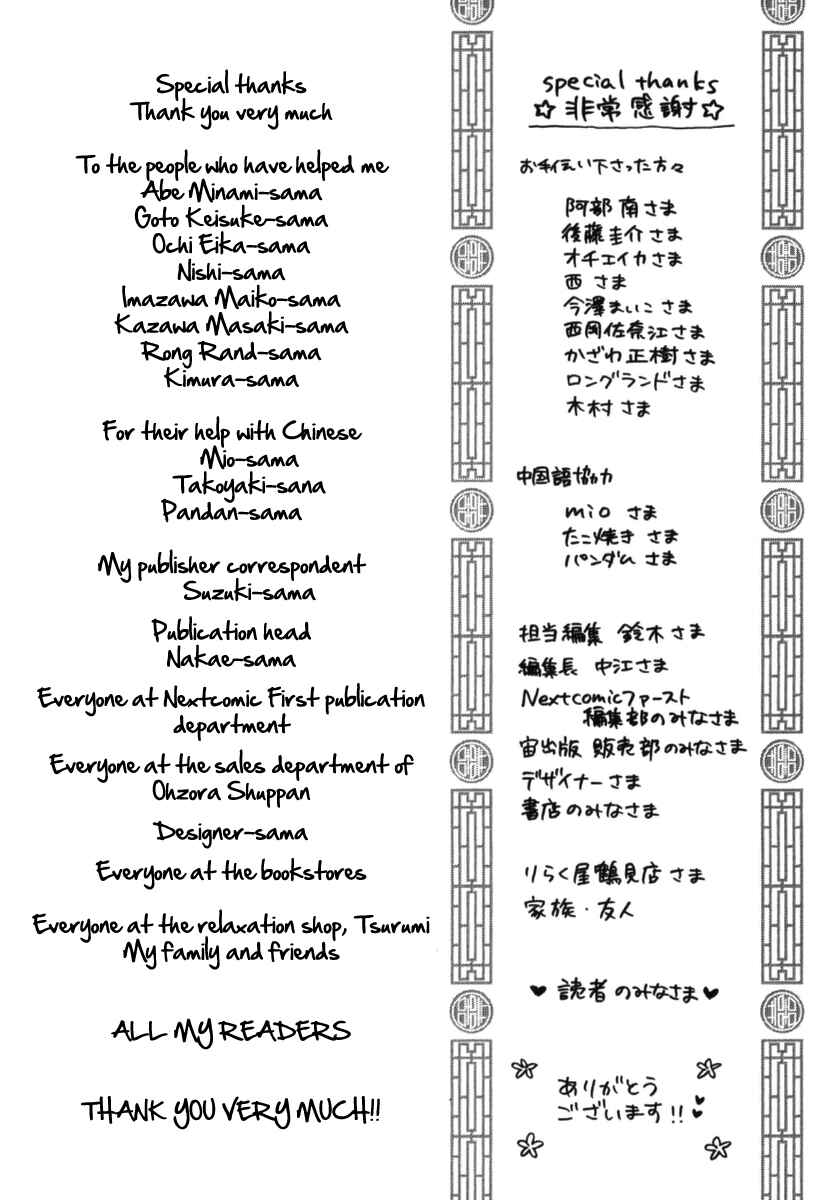 Special thanks
Thank you very much
To the people who have helped me
Abe Minami-sama
Goto Keisuke-sama
Ochi Eika-sama
Nishi-sama
Imazawa Maiko-sama
Kazawa Masaki-sama
Rong Rand-sama
Kimura-sama
For their help with Chinese
Mio-sama
Takoyaki-sana
Pandan-sama
My publisher correspondent
Suzuki-sama
Publication head
Nakae-sama
Everyone at Nextcomic First publication
department
Everyone at the sales department of
Ohzora Shuppan
Designer-sama
Everyone at the bookstores
Everyone at the relaxation shop, Tsurumi
My family and friends
ALL MY READERS
THANK YOU VERY MUCH!!
special thanks
☆非常感謝☆
お手伝い下さった方々
阿部 南さま
後藤圭介さま
オチエイカさま
西 さま
今澤まいこ さま
西岡佐奈江さま
かざわ正樹さま
ロングランドさま
木村 さま
中国語協力
mio さま
たこ焼き さま
パンダム さま
担当編集 鈴木さま
編集長 中江さま
Nextcomicファースト
編集部のみなさま
宙出版 販売部のみなさま
デザイナーさま
書店のみなさま
りらく屋鶴見店 さま
家族・友人
♥ 読者のみなさま♥
ありがとう
ございます!!